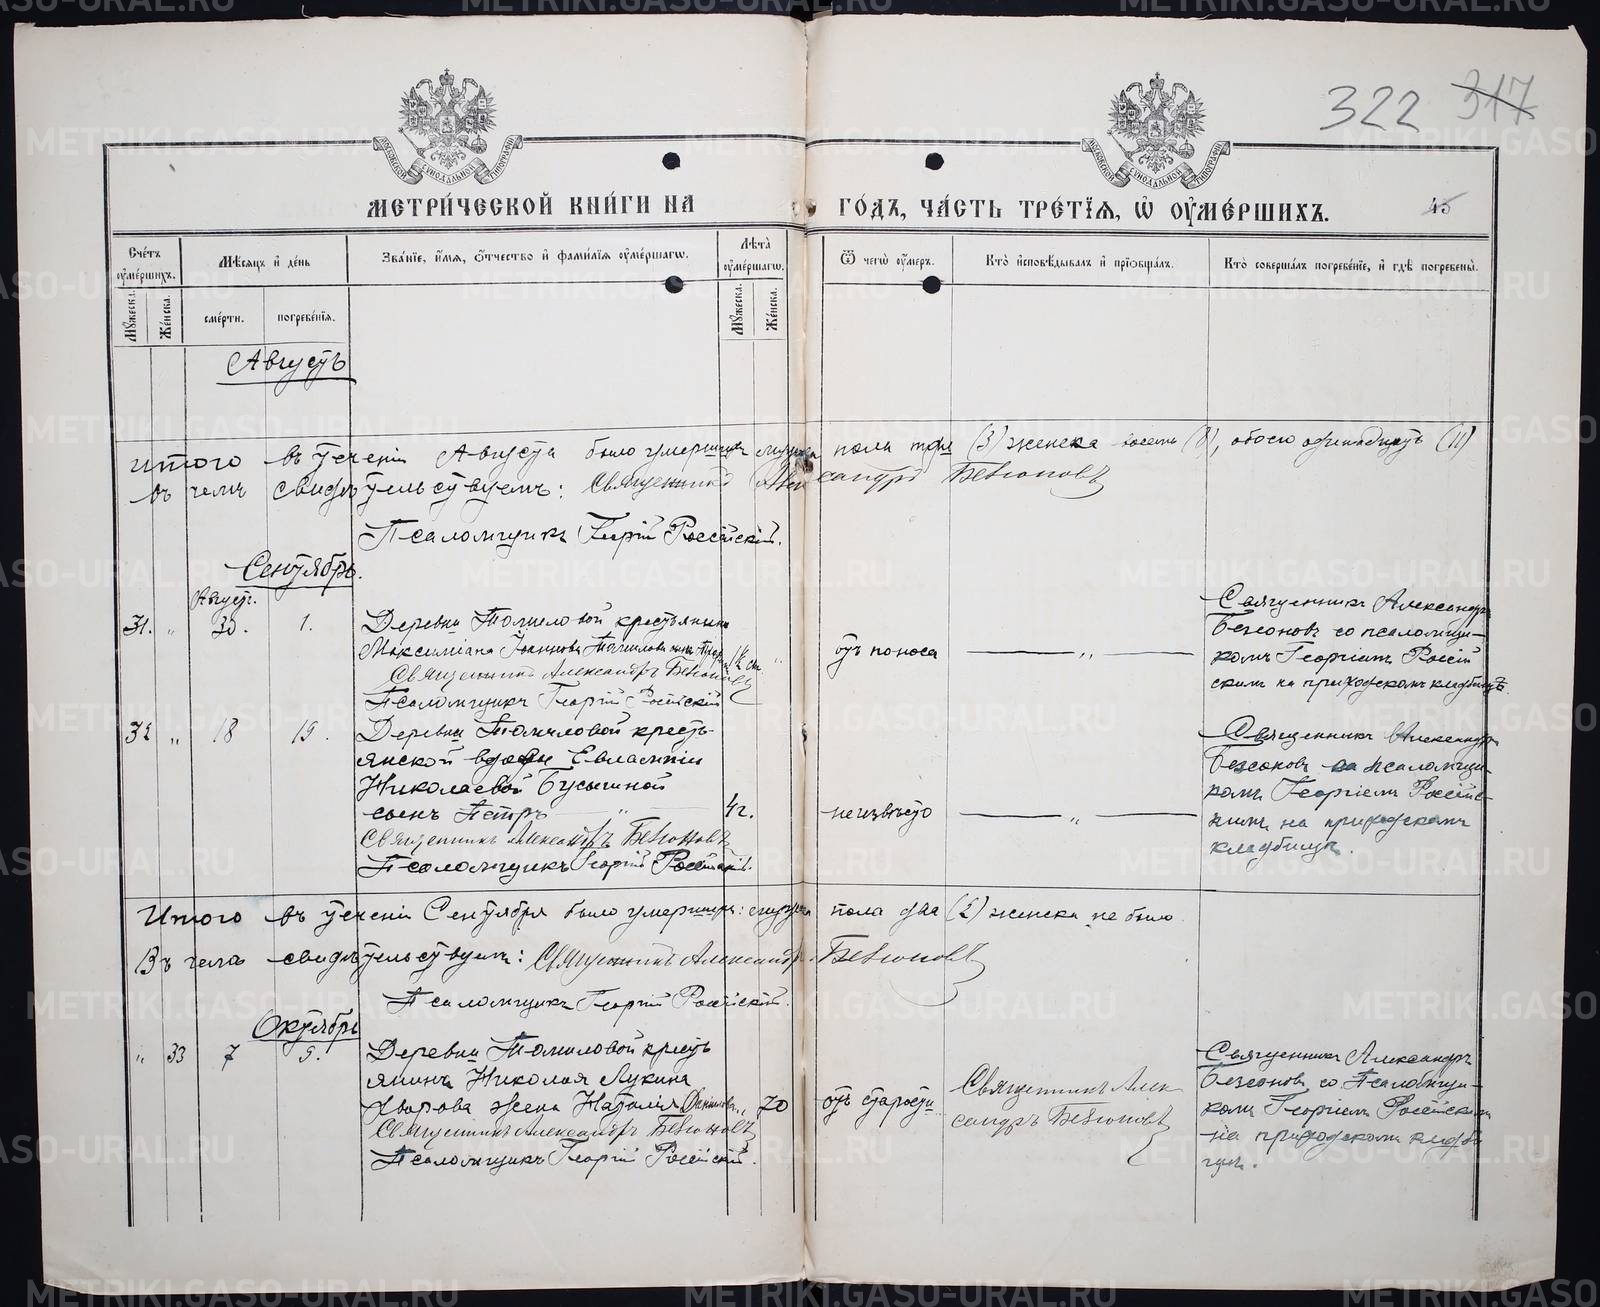 322 317
МЕТРИ́ЧЕСКОЙ КНИ́ГИ НА ГО́ДЪ, ЧА́СТЬ ТРЕ́ТІѦ, Ѡ ОУ҆МЕ́РШИХЪ.
45
Сче́тъ оу҆ме́ршихъ.
Мѣ́сѧцъ и҆ де́нь
Зва́нїе, и҆́мѧ, ѻ҆́тчество и҆ фамилїѧ оу҆ме́ршагѡ.
Лѣ́та оу҆ме́ршагѡ.
Ѿ чегѡ̀ оу҆́меръ.
Кто̀ и҆сповѣ́дывалъ и҆ прїѻбща́лъ.
Кто̀ соверша́лъ погребе́нїе, и҆ гдѣ̀ погребены̀.
Мꙋ́жеска.
Же́нска.
сме́рти.
погребе́нїѧ.
Мꙋ́жеска.
Же́нска.
Августъ
Итого въ теченіи Августа было умершихъ мужеска пола три (3) женска восемь (8), обоего одиннадцать (11)
въ чемъ свидѣтельствуемъ: Священникъ Александръ Безсоновъ
Псаломщикъ Георгій Россійскій.
Сентябрь.
Августъ.
31. " 30. 1. Деревни Томиловой крестьянина
Максиміана Іоаннова Томилова сынъ
Священникъ Александръ Безсоновъ
Псаломщикъ Георгій Россійскій
отъ поноса
— " —
Священникъ Александръ
Безсоновъ со псаломщи-
комъ Георгіемъ Россій
скимъ на приходскомъ кладбищѣ.
32 " 18 19. Деревни Томиловой кресть-
янской вдовы Евлампіи
Николаевой Бусыгиной
сынъ Петръ — " — 4 г.
Священникъ Александръ Безсоновъ
Псаломщикъ Георгій Россійскій.
неизвѣстно
— " —
Священникъ Александръ
Безсоновъ со псаломщи-
комъ Георгіемъ Россійс-
кимъ на приходскомъ
кладбищѣ.
Итого въ теченіи Сентября было умершихъ: мужеска пола два (2) женска не было.
Въ чемъ свидѣтельствуемъ: Священникъ Александръ Безсоновъ
Псаломщикъ Георгій Россійскій.
Октябрь
" 33 7 9. Деревни Томиловой кресть
янина Николая Лукина
Уварова жена Наталія Данилова " 70
Священникъ Александръ Безсоновъ
Псаломщикъ Георгій Россійскій.
отъ старости
Священникъ Алек
сандръ Безсоновъ
Священникъ Александръ
Безсоновъ со Псаломщи-
комъ Георгіемъ Россійскимъ
на приходскомъ кладби
щѣ.
METRIKI.GASO-URAL.RU